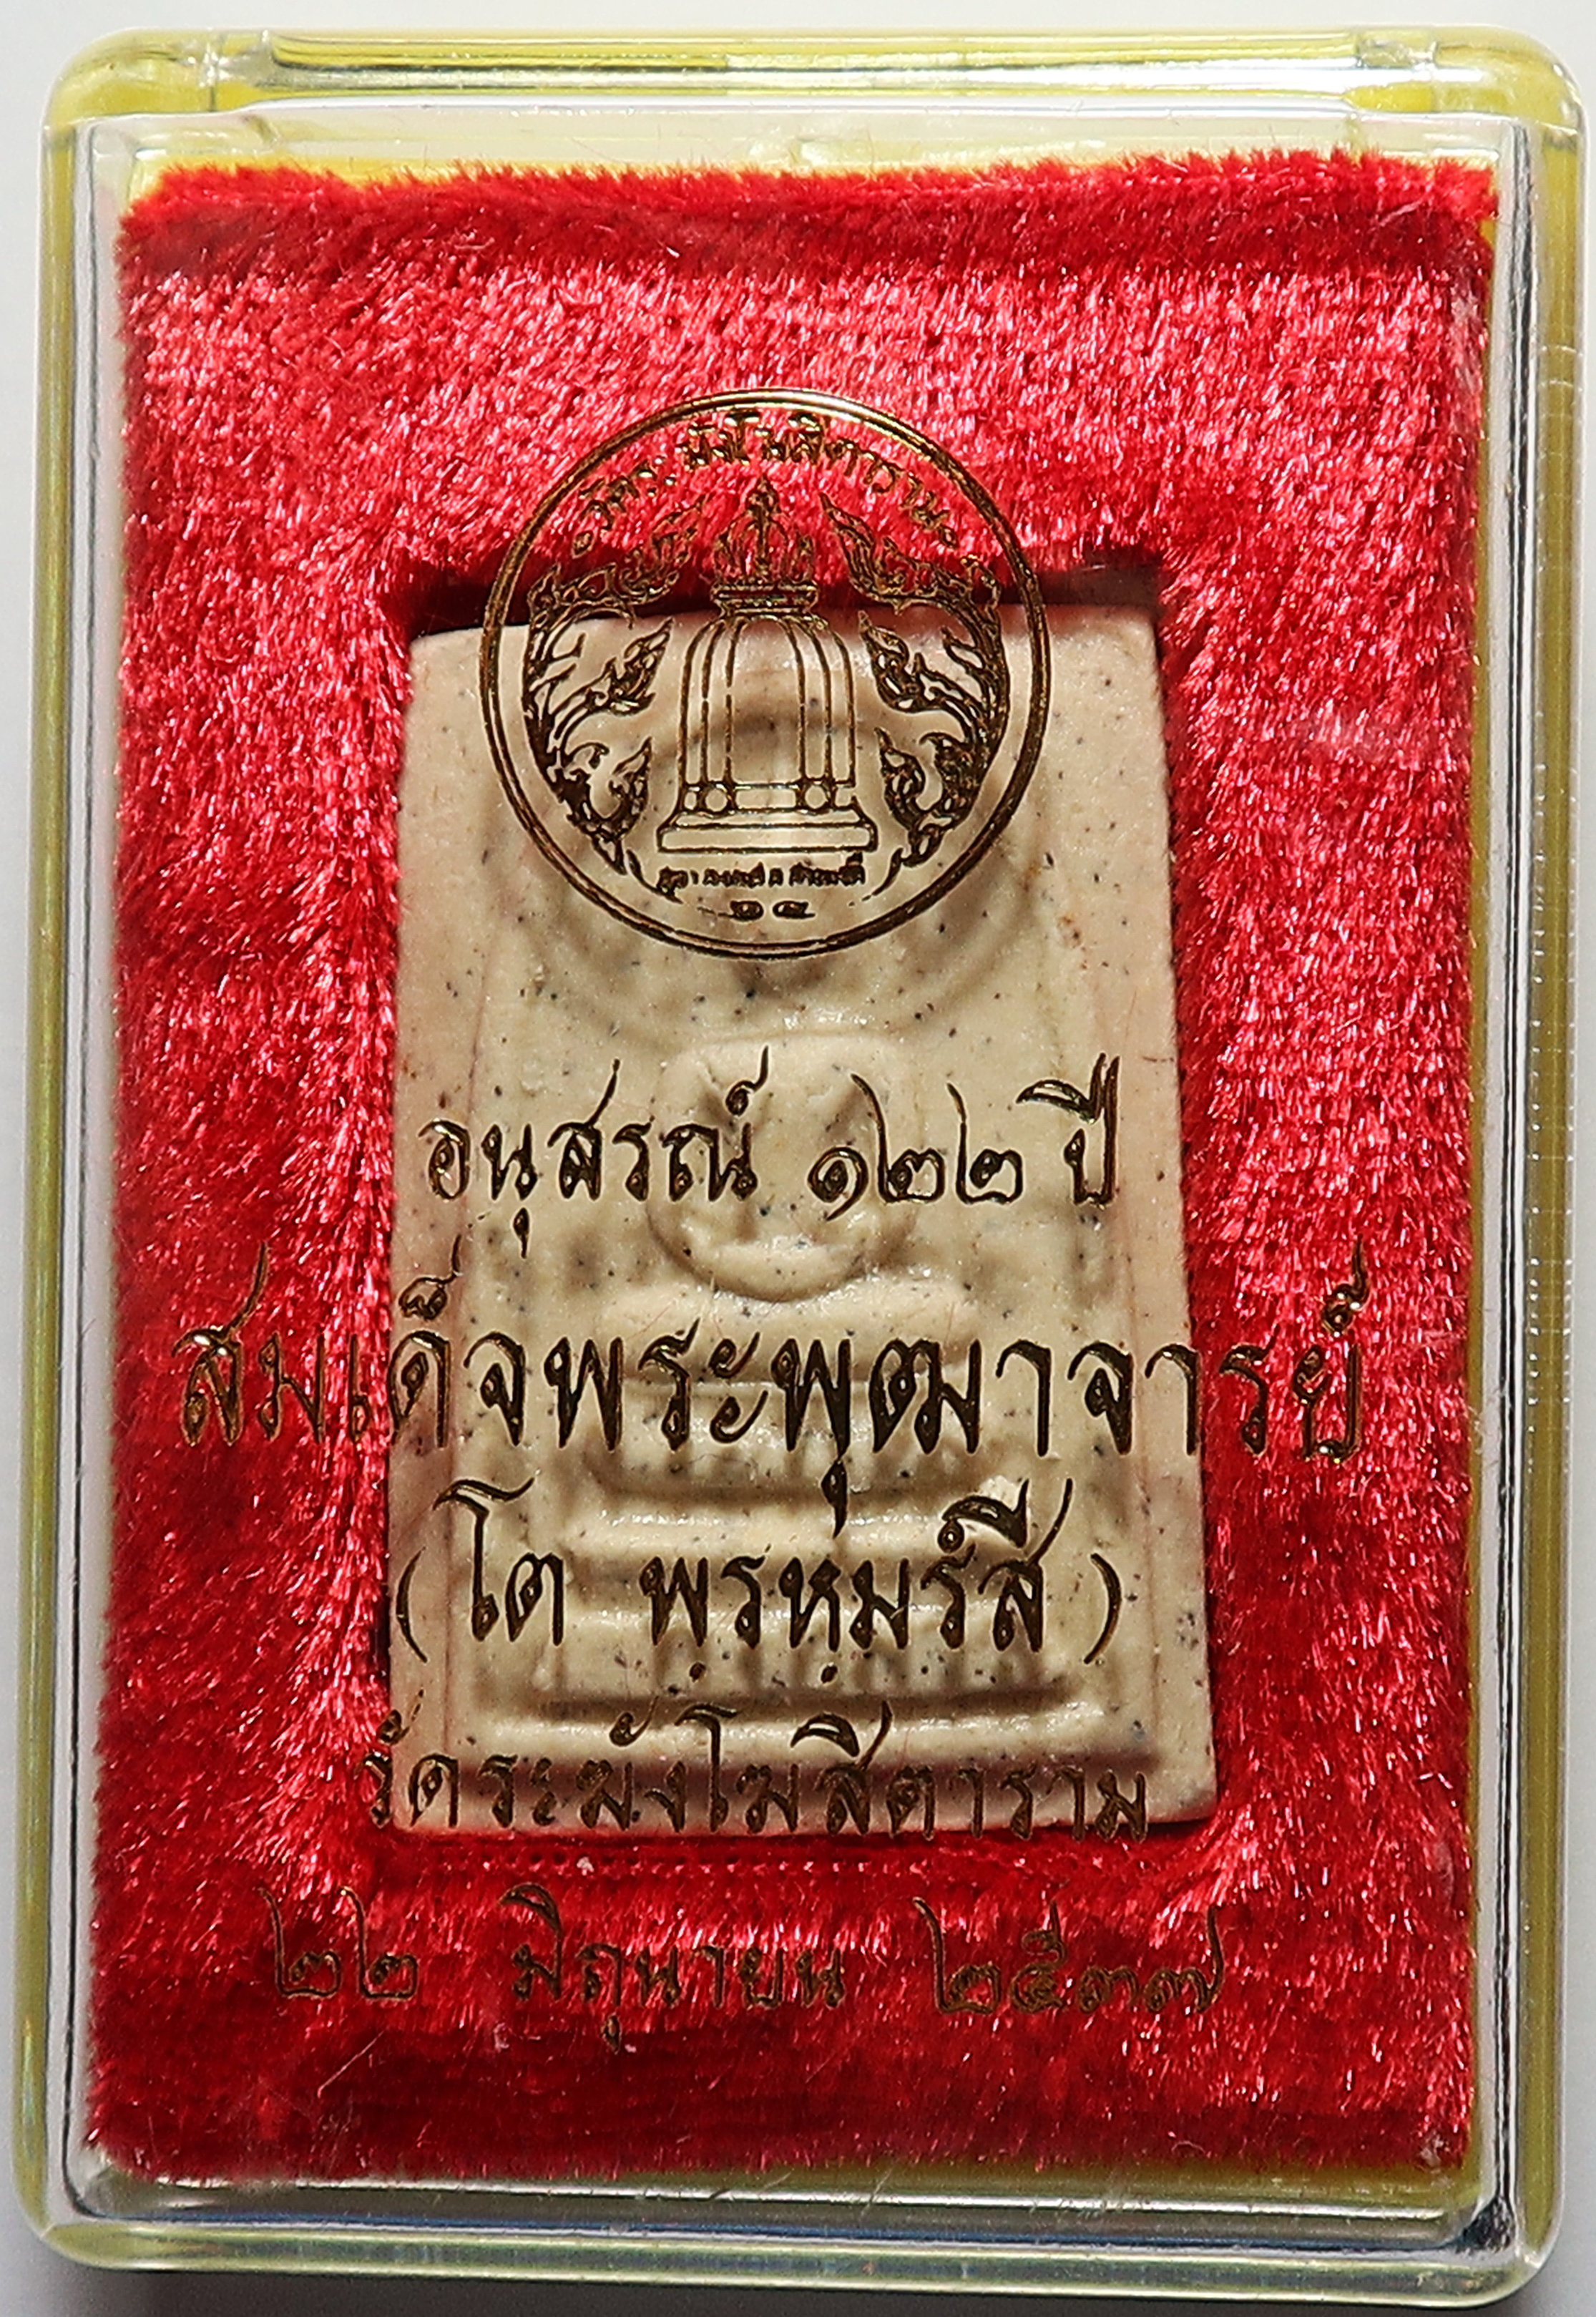 วัดระฆังโฆสิตาราม
อนุสรณ์ ๑๒๒ ปี
สมเด็จพระพุฒาจารย์
(โต พรหมรังสี)
วัดระฆังโฆสิตาราม
๒๒ มิถุนายน ๒๕๓๗